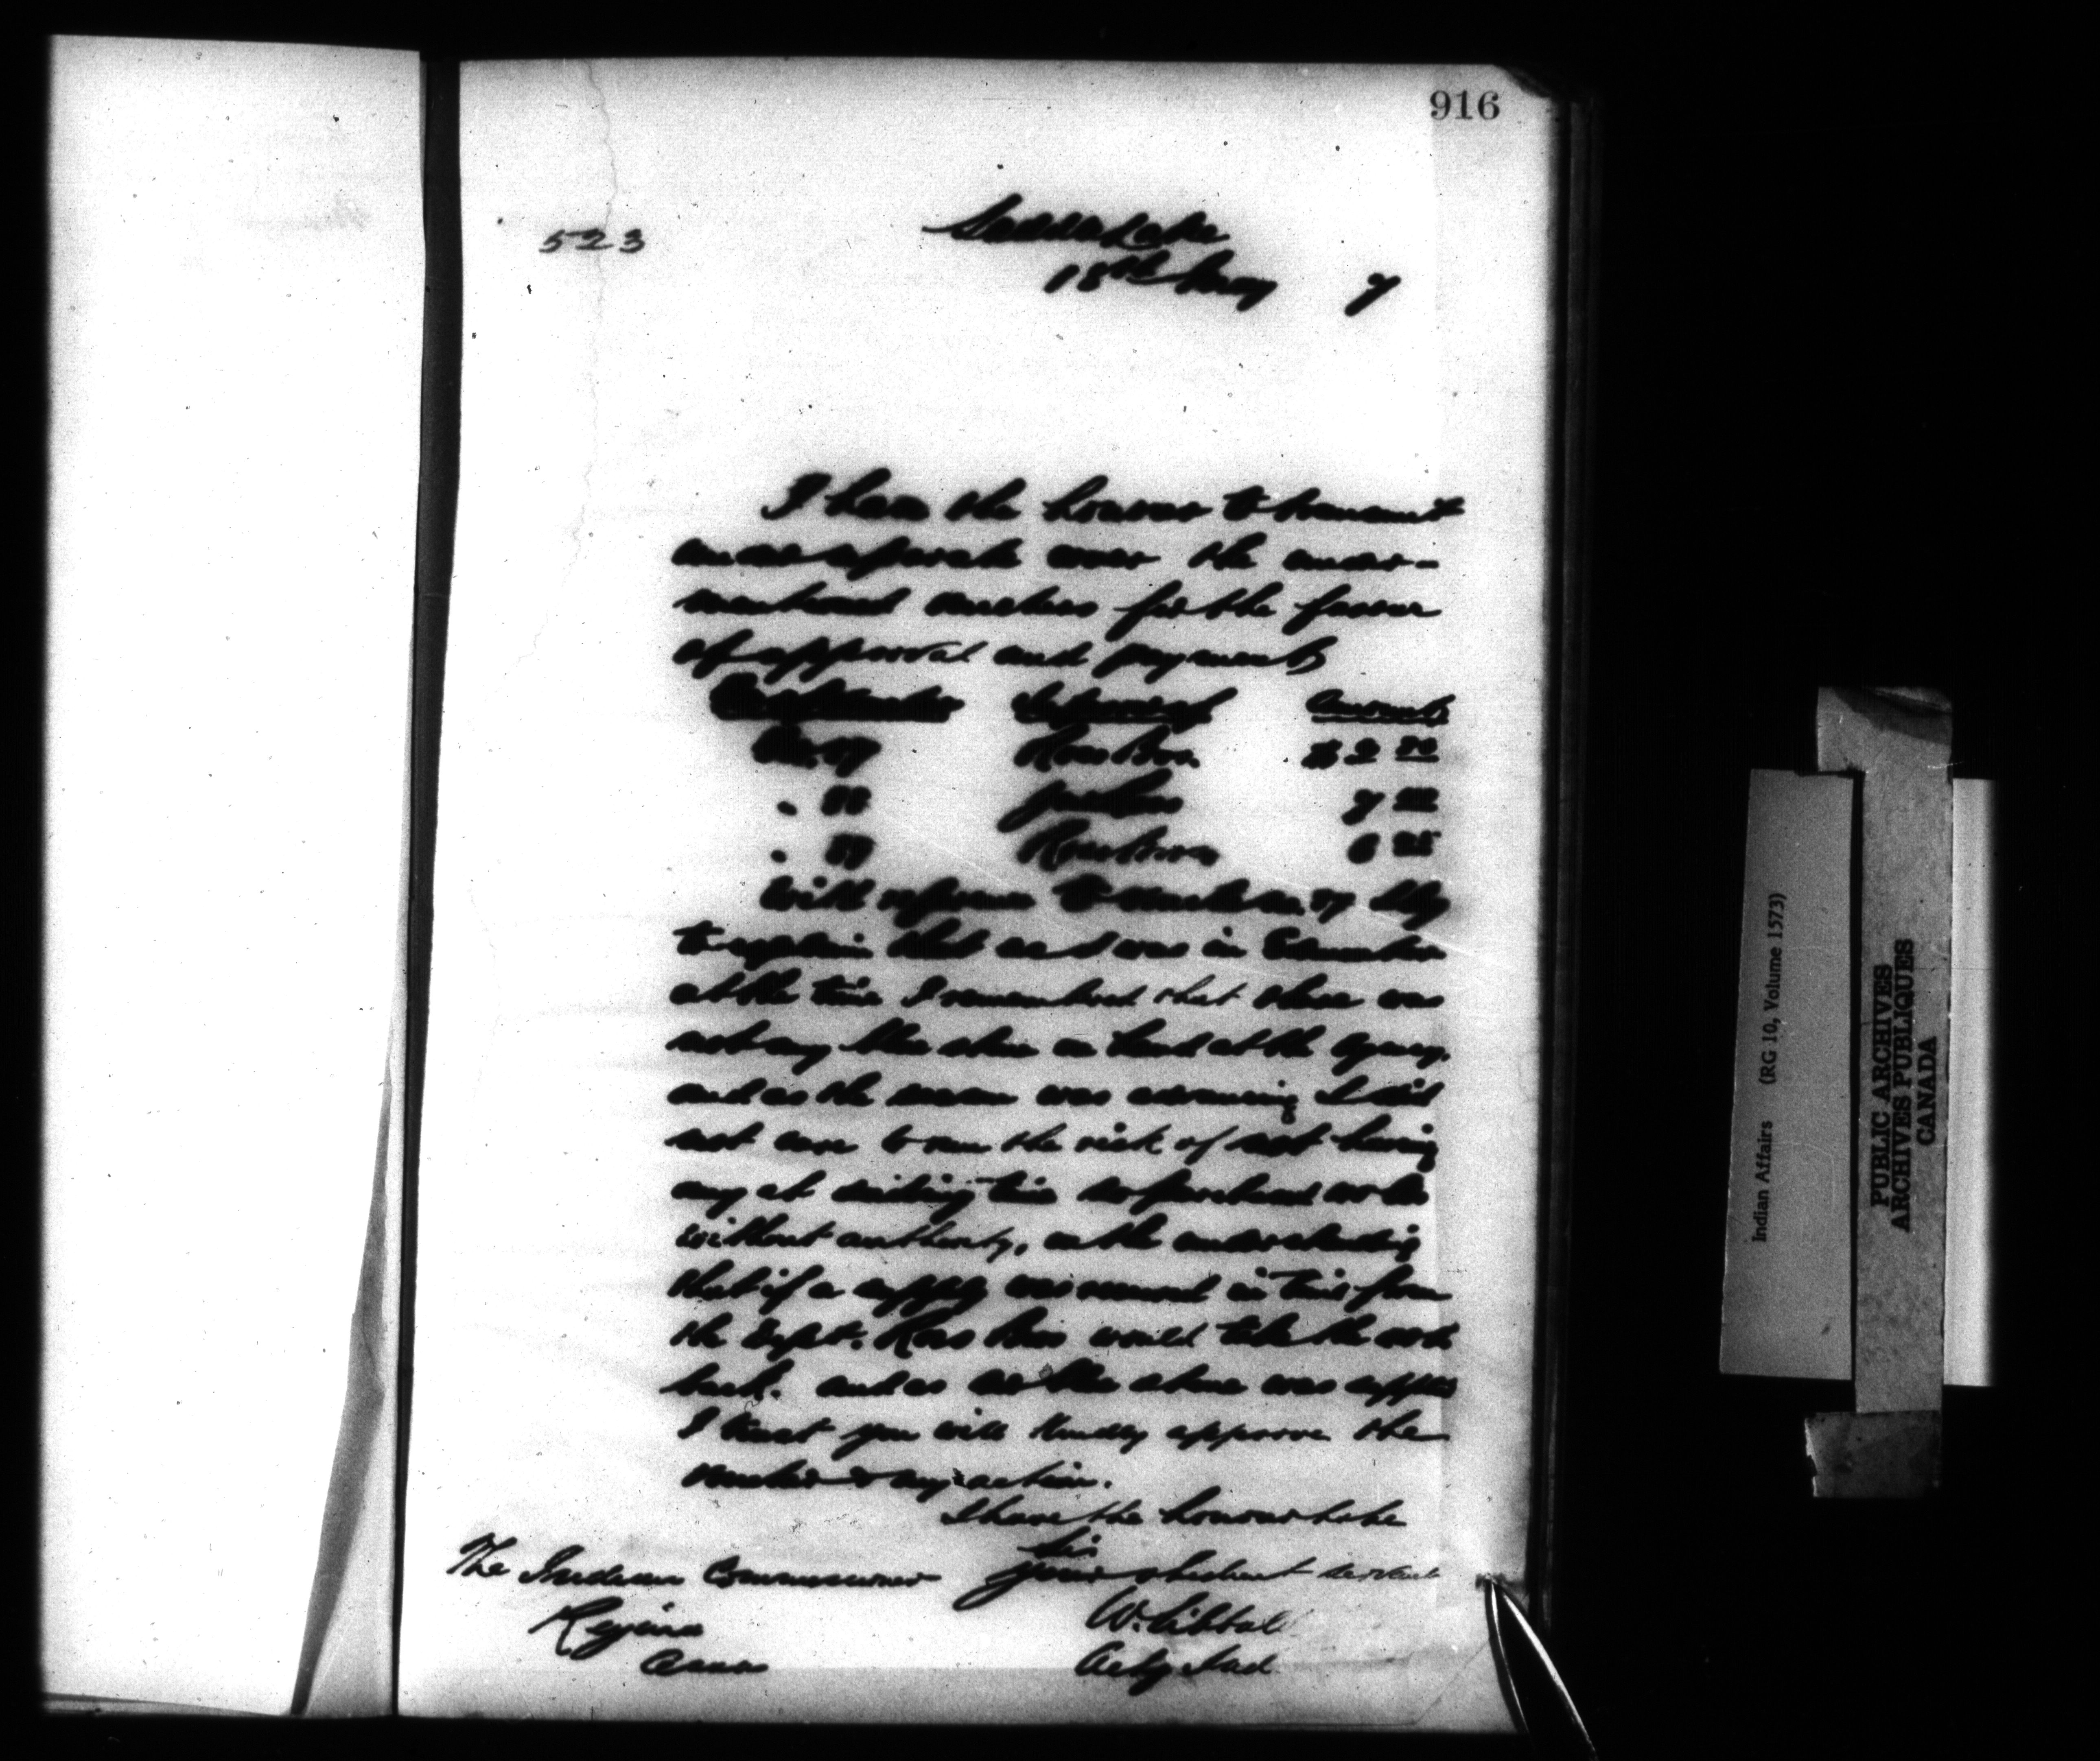 916
523
Saddle Lake
18th May 7
I have the honour to transmit
under separate cover the under-
mentioned vouchers for the favour
of approval and payment
In favour of Amount
No. 87 Ross Bros. $ 2
" 88 7
" 89 Ross Bros 6 25
With reference to voucher no. 87 I beg
to explain that as I was in Edmonton
at the time I remembered that there was
not any blue stone on hand at the Agency.
and as the season was advancing I did
not care to run the risk of not having
any at seeding time so purchased
without authority, on the understanding
that if a supply was received in time from
the Dept. Ross Bros would take the
back. and as the stone was
I trust you will kindly approve the
voucher & my action.
I have the honour to be
Sir
your obedient servant
The Indian Commissioner
W. Sibbald
Regina
Assa
Actg Ind
Indian Affairs (RG 10, Volume 1573)
PUBLIC ARCHIVES
ARCHIVES PUBLIQUES
CANADA